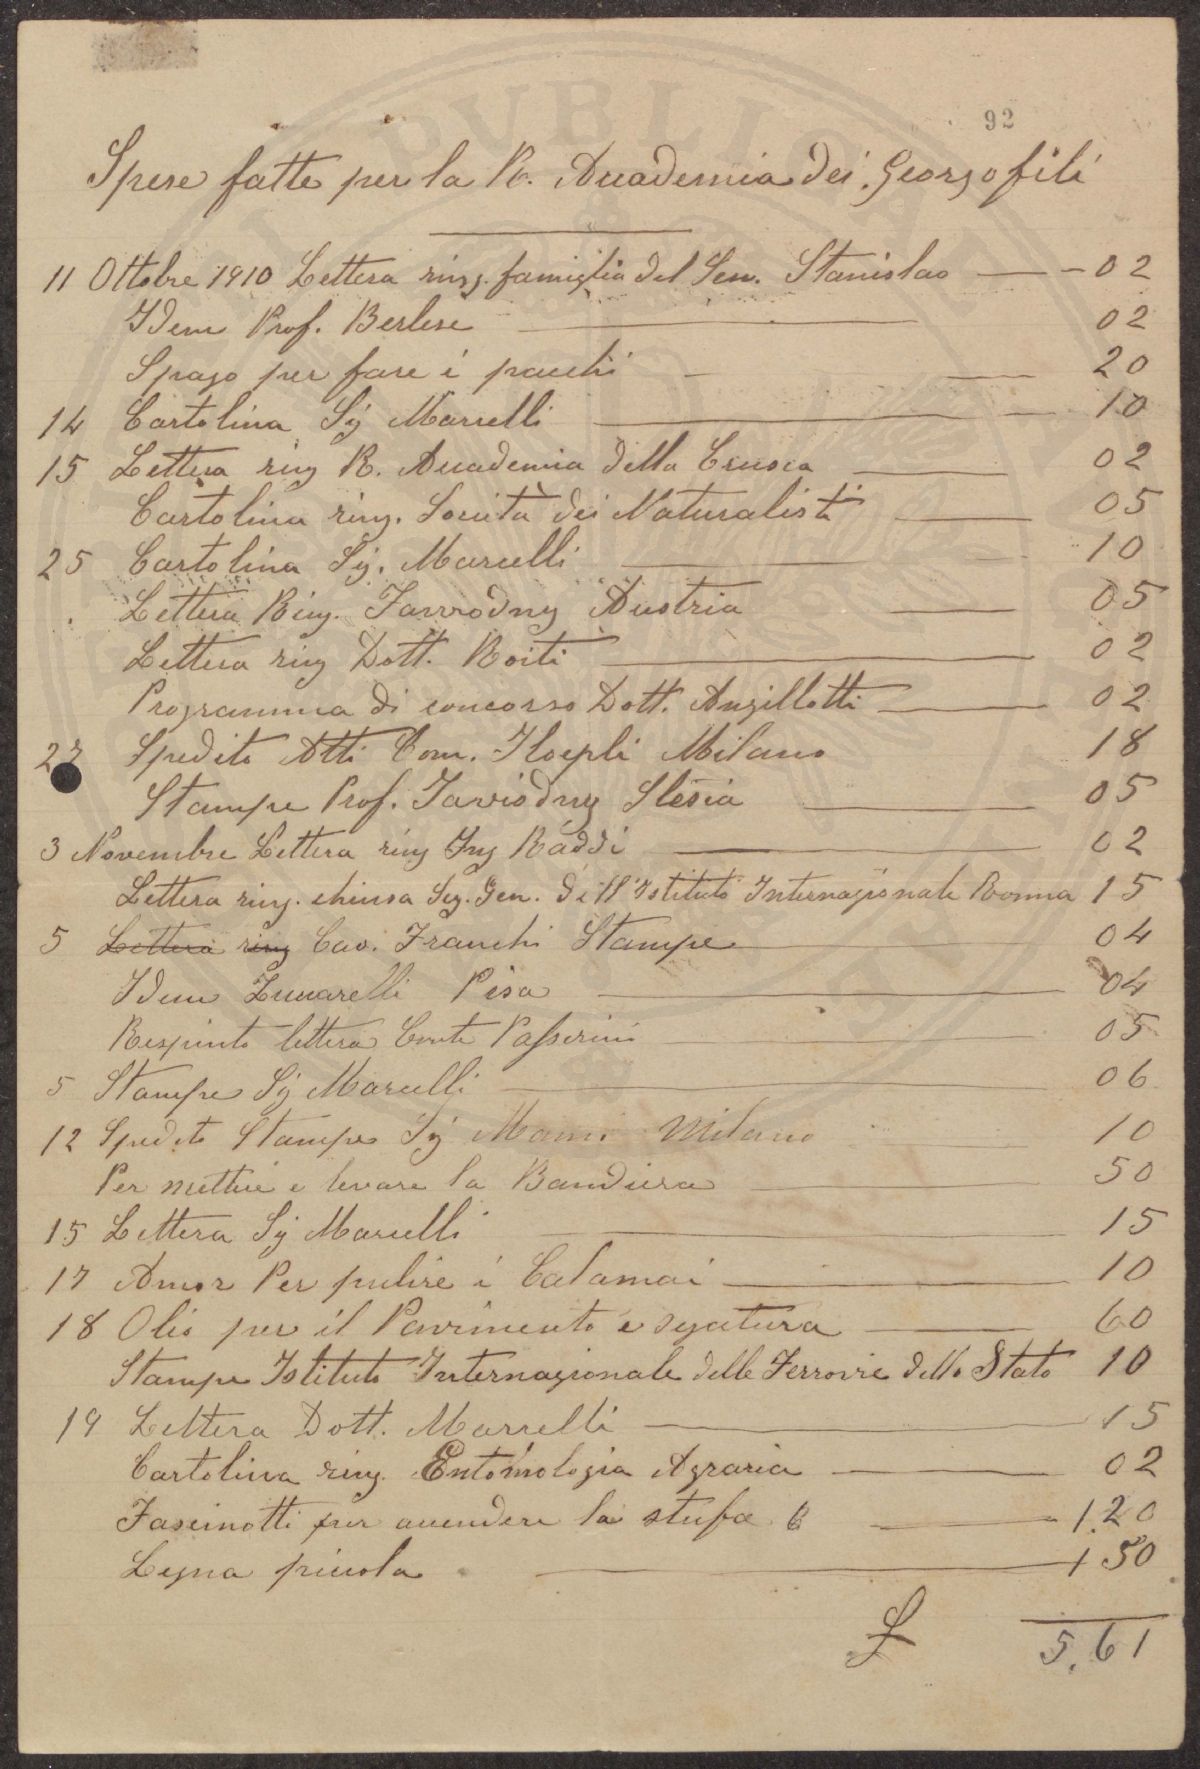 92
Spese fatte per la R. Accademia dei Georgofili
11 Ottobre 1910 Lettera ring. famiglia del Sen. Stanislao — 02
Idem Prof. Berlese 02
Spago per fare i pacchi 20
14 Cartolina Sig Marcelli 10
15 Lettera ring R. Accademia della Crusca 02
Cartolina ring. Società dei Naturalisti 05
25 Cartolina Sig. Marcelli 10
Lettera Ring. Austria 05
Lettera ring Dott. Roiti 02
Programma di concorso Dott. Angillotti 02
27 Spedito Atti Com. Hoepli Milano 18
Stampe Prof. Slesia 05
3 Novembre Lettera ring Ing Raddi 02
Lettera ring. chiusa Seg. Gen. dell'Istituto Internazionale Roma 15
5 Lettera ring Cav. Franchi Stampe 04
Idem Zuccarelli Pisa 04
Respinto lettera Conte Passerini 05
5 Stampe Sig Marcelli 06
12 Spedito Stampe Sig Milano 10
Per mettere e levare la Bandiera 50
15 Lettera Sig Marcelli 15
17 Amor Per pulire i Calamai 10
18 Olio per il Pavimento e segatura 60
Stampe Istituto Internazionale delle Ferrovie dello Stato 10
19 Lettera Dott. Marcelli 15
Cartolina ring. Entomologia Agraria 02
Fascinotti per accendere la stufa 6 1.20
Legna piccola 1 50
£ 5.61